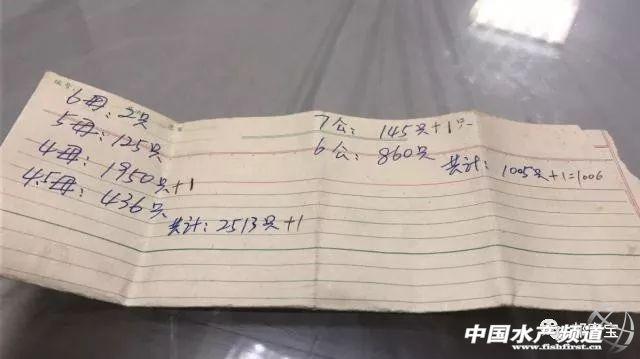 6母：2只
5母：125只
4母：1950只+1
4.5母：436只
共计：2513只+1
7公：145只+1只
6公：860只
共计：1005只+1=1006
中国水产频道
www.fishfirst.cn